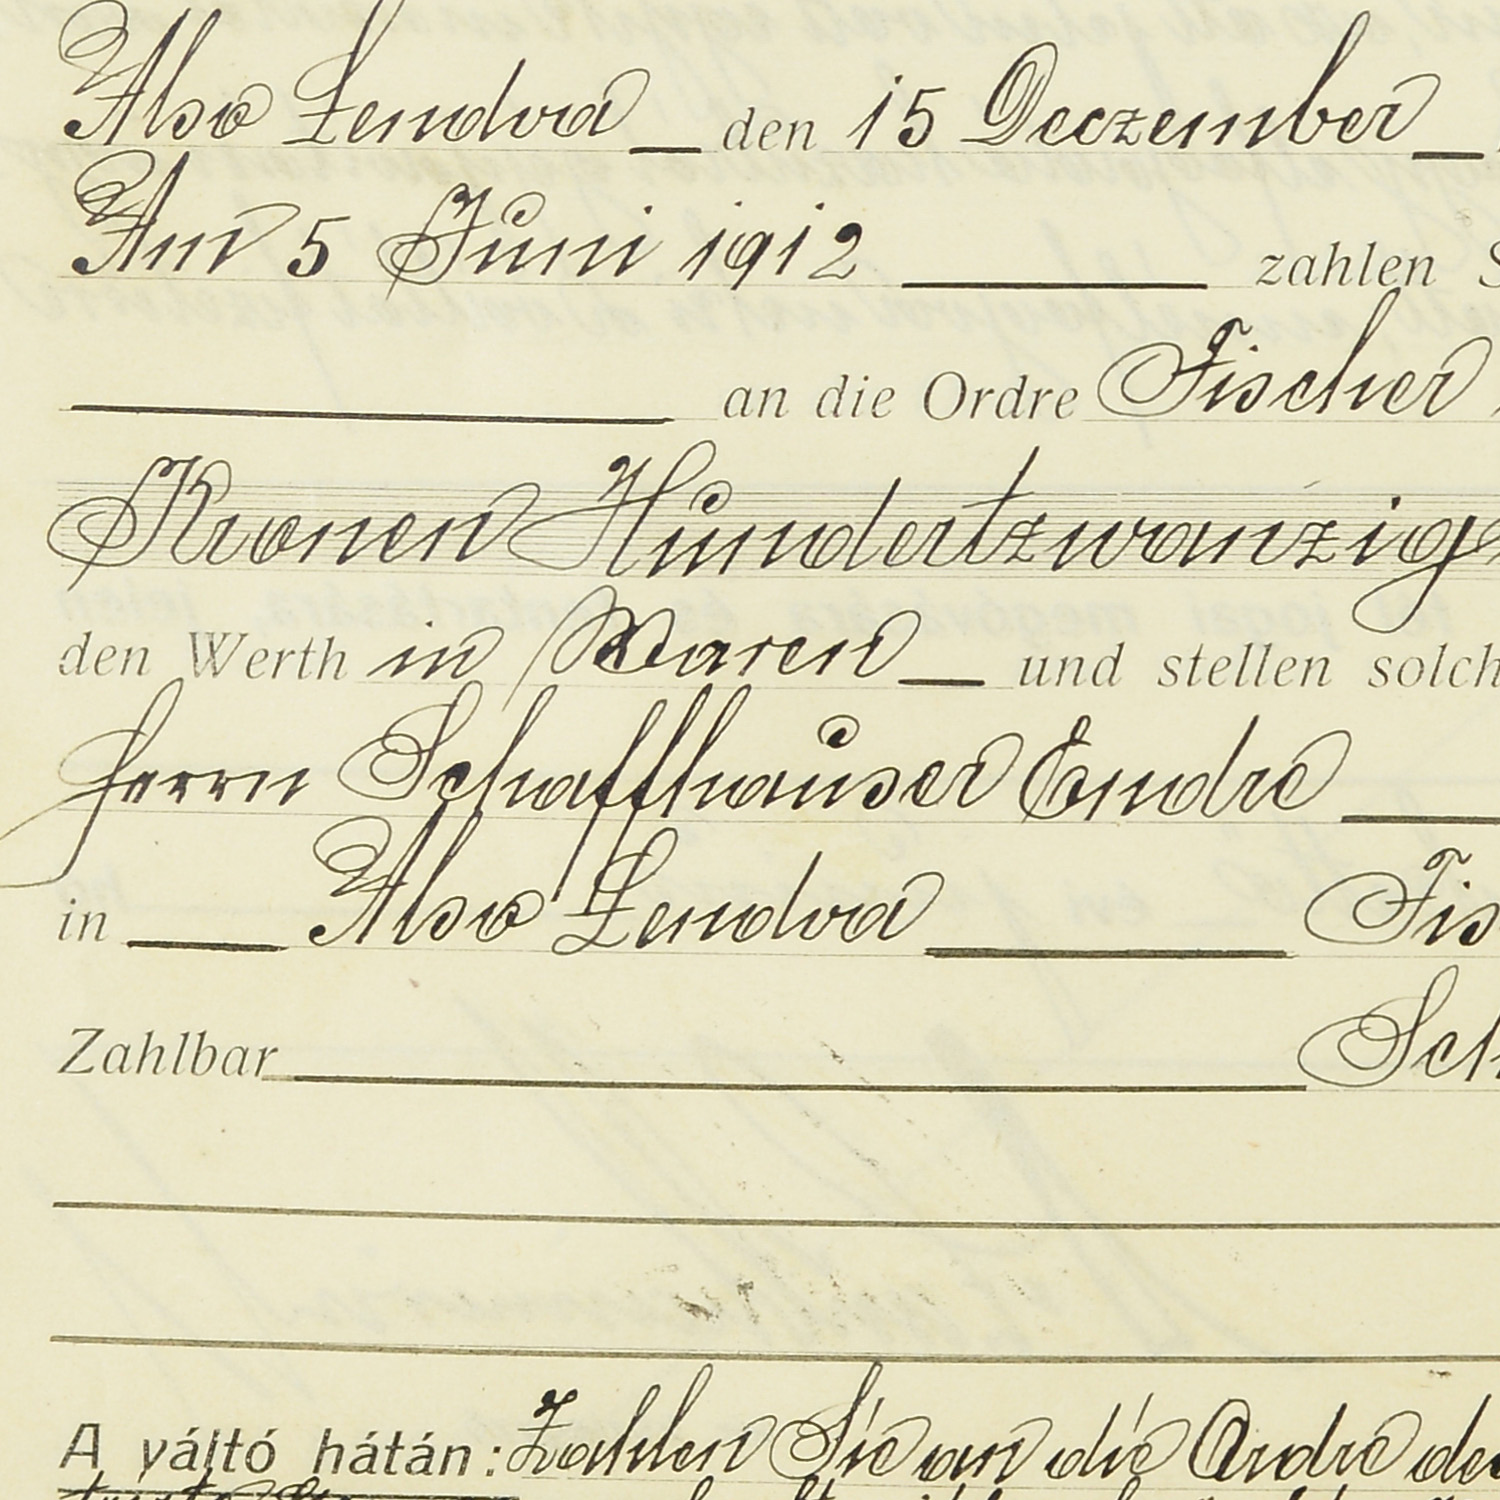 Also Lendva den 15 Deczember
Am 5 Juni 1912 zahlen S
an die Ordre Fischer
Kronen Hundertzwanzig
den Werth in Waren und stellen solch
Herrn Schaffhauser Endre
in Also Lendva Fis
Zahlbar Sch
A váltó hátán: Zahlen Sie an die Ordre de